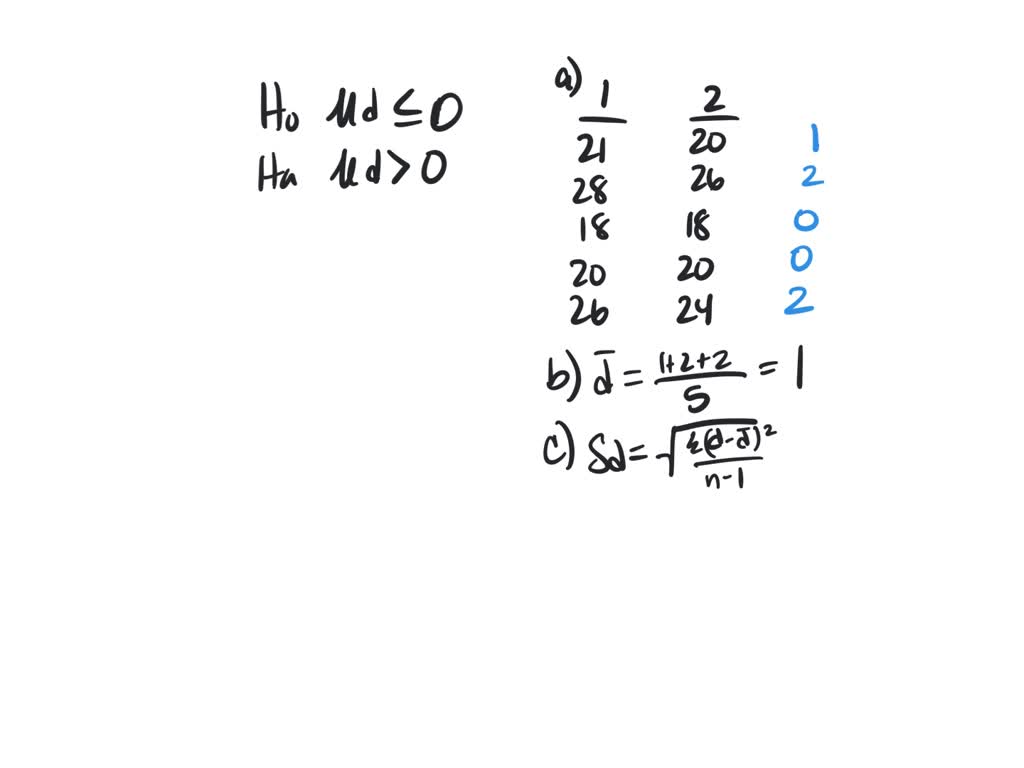 H₀ μd ≤ 0
Ha μd > 0
a) 1 2
21 20 1
28 26 2
18 18 0
20 20 0
26 24 2
b) d̄ = (1+2+2)/5 = 1
c) Sd = √(Σ(d-d̄)²/(n-1))